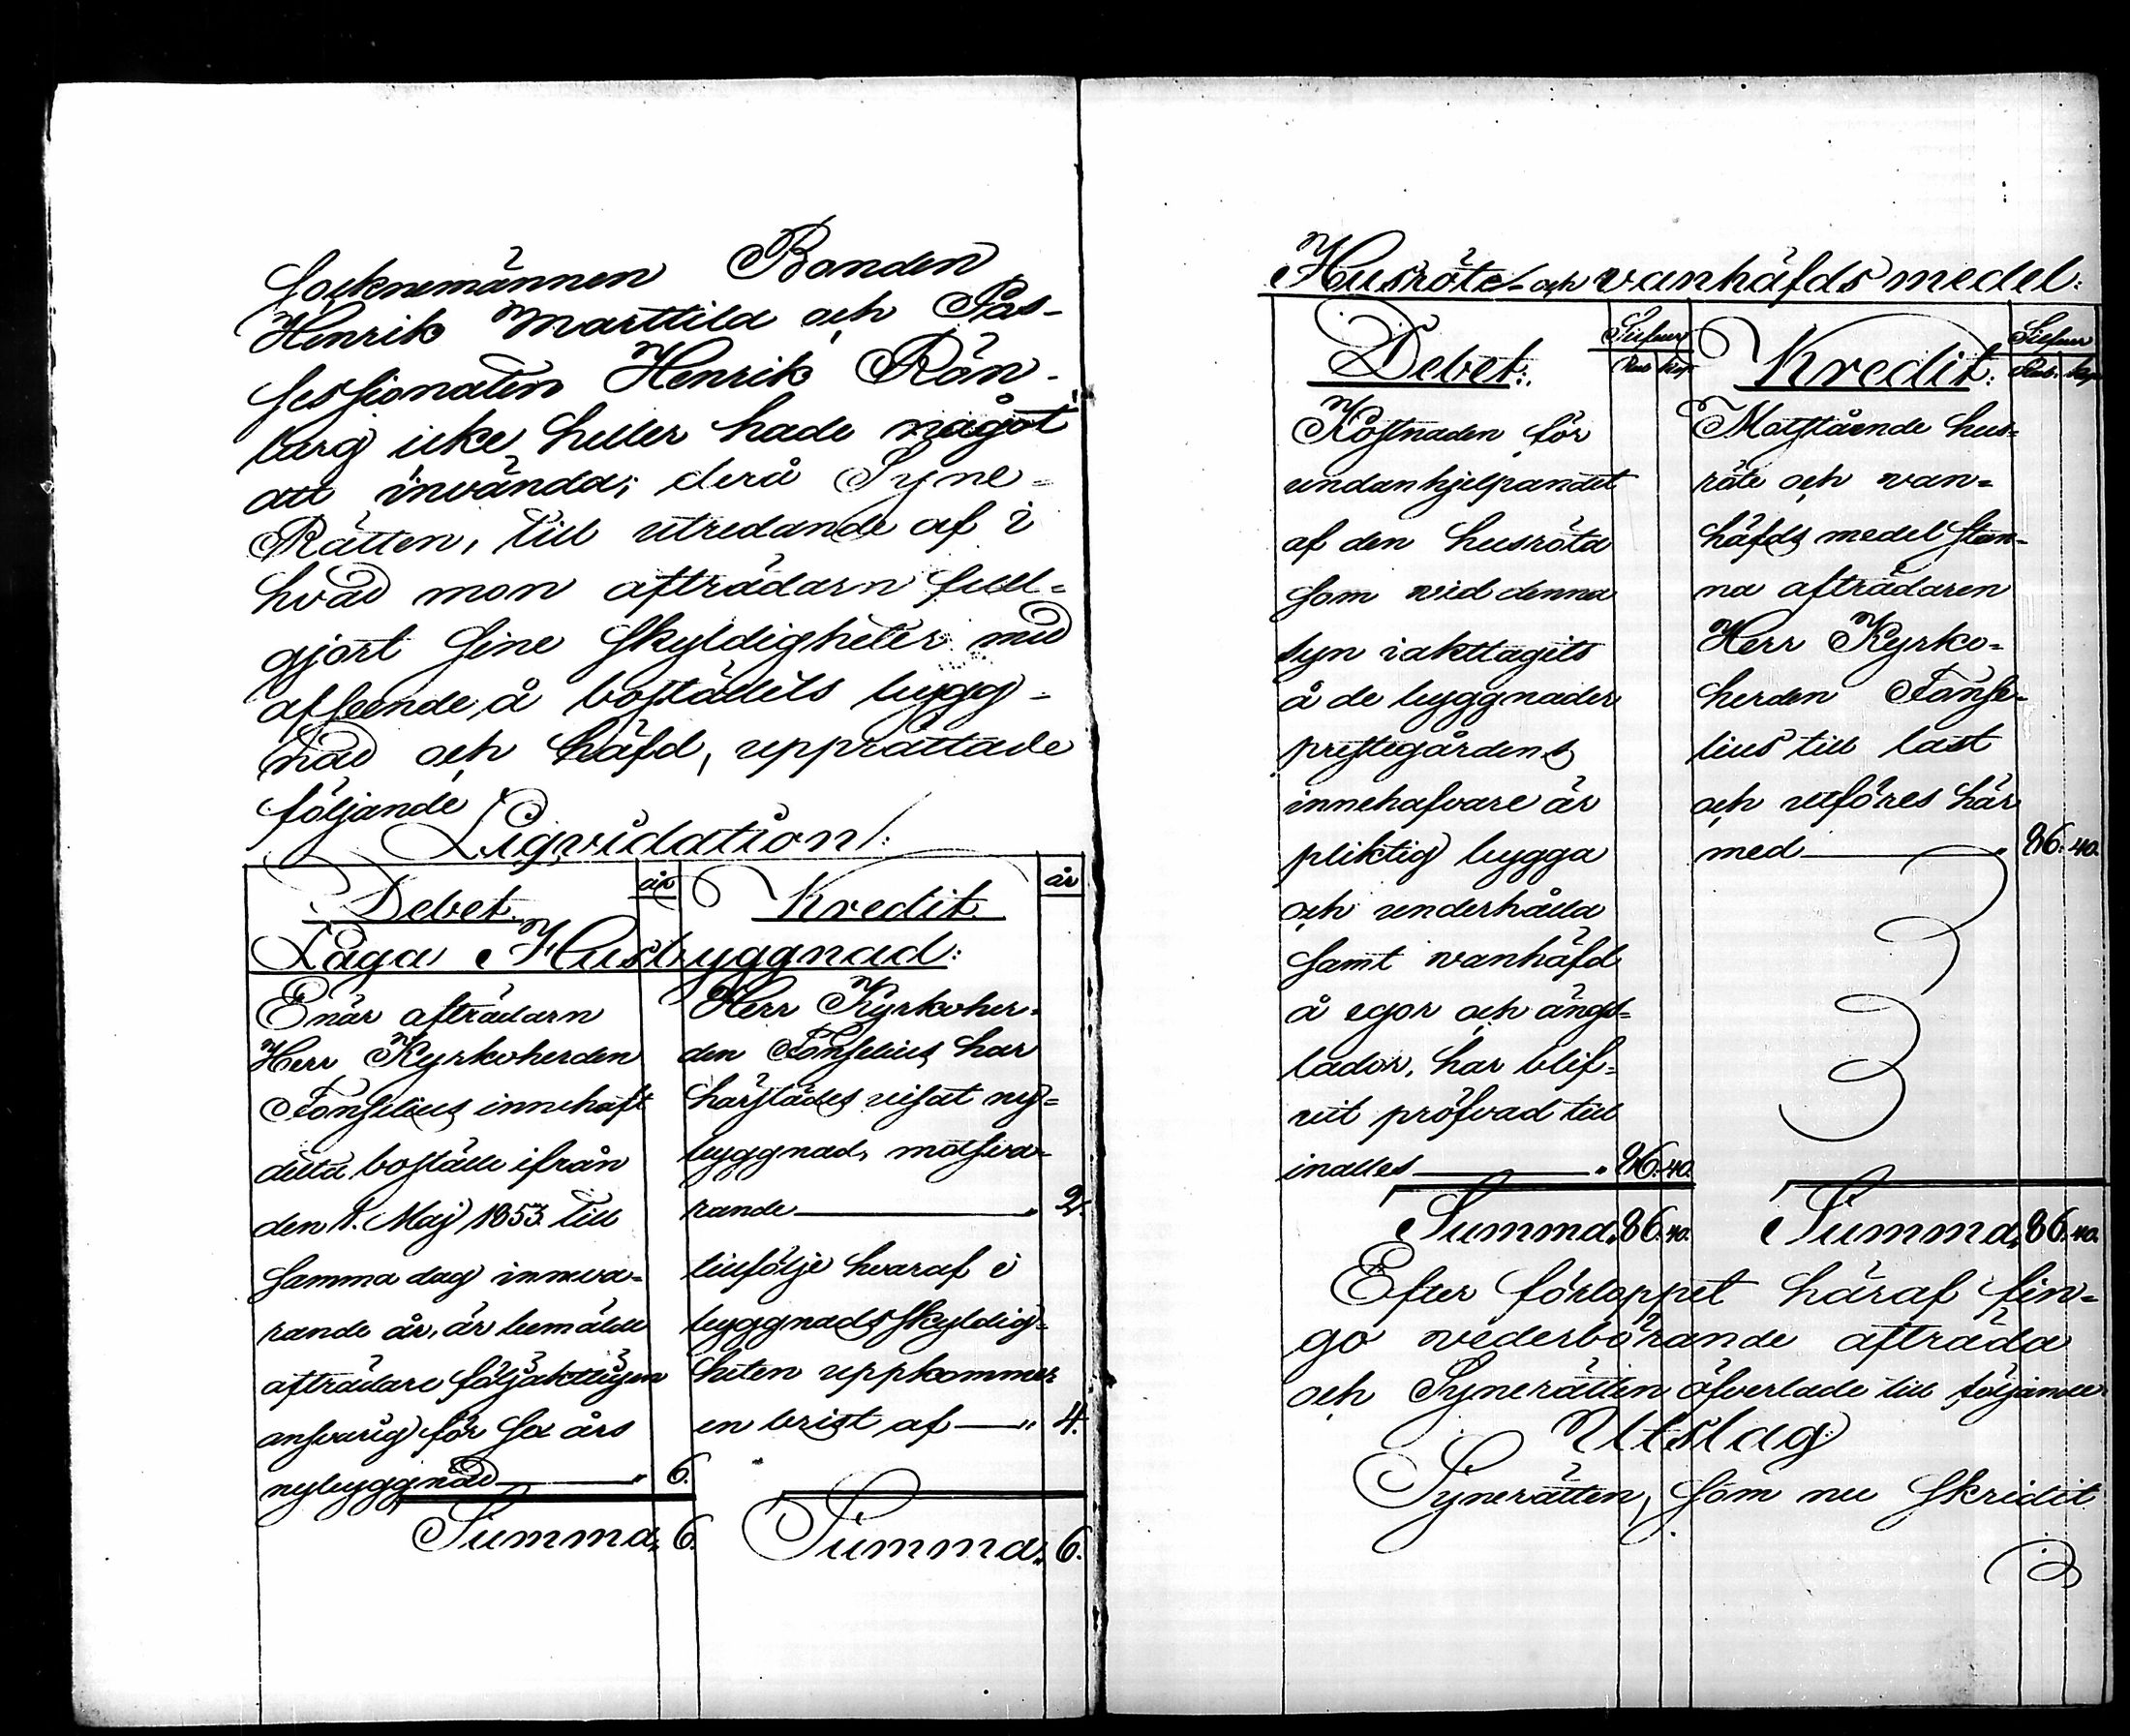 Socknemännen Bonden
Henrik Marttila och Pos-
sessionaten Henrik Rön-
berg icke heller hade något
att invända; derå Syne-
Rätten, till utredande af i
hvad mon afträdarn full-
gjort sine skyldigheter med
afseende å boställets bygg-
nad och häfd, upprättade
följande
Liqvidation:
Debet. år Kredit år
Laga Husbyggnad:
Enär afträdarn
Herr Kyrkoherden
Fonselius innehaft
detta boställe ifrån
den 1. Maj 1853 till
samma dag innewa-
rande år, är bemälde
afträdare följaktligen
answarig för sex års
nybyggnad " 6.
Summa, 6.
Herr Kyrkoher-
den Fonselius har
härstädes visat ny-
byggnad, motsva-
rande " 2.
tillfölje hvaraf i
byggnadsskyldig-
heten uppkommer
en brist af " 4.
Summa, 6.
Husröte- och vanhäfdsmedel:
Debet: Silfwer Rub. Kop.
Kostnaden för
undanhjelpandet
af den husröta
som vid denna
syn iakttagits
å de byggnader
prestegårdens
innehafvare är
pliktig bygga
och underhålla
samt vanhäfd
å egor och ängs-
lador, har blif-
vit pröfvad till
inalles " 86. 40.
Summa, 86. 40.
Kredit: Silfwer Rub. Kop.
Motstående hus-
röte och van-
häfds medel stan-
na afträdaren
Herr Kyrko-
herden Fonse-
lius till last
och utföres här
med " 86. 40.
Summa, 86. 40.
Efter förloppet häraf fin-
go wederbörande afträda
och Synerätten öfverlade till följande
Utslag
Synerätten, som nu skridit